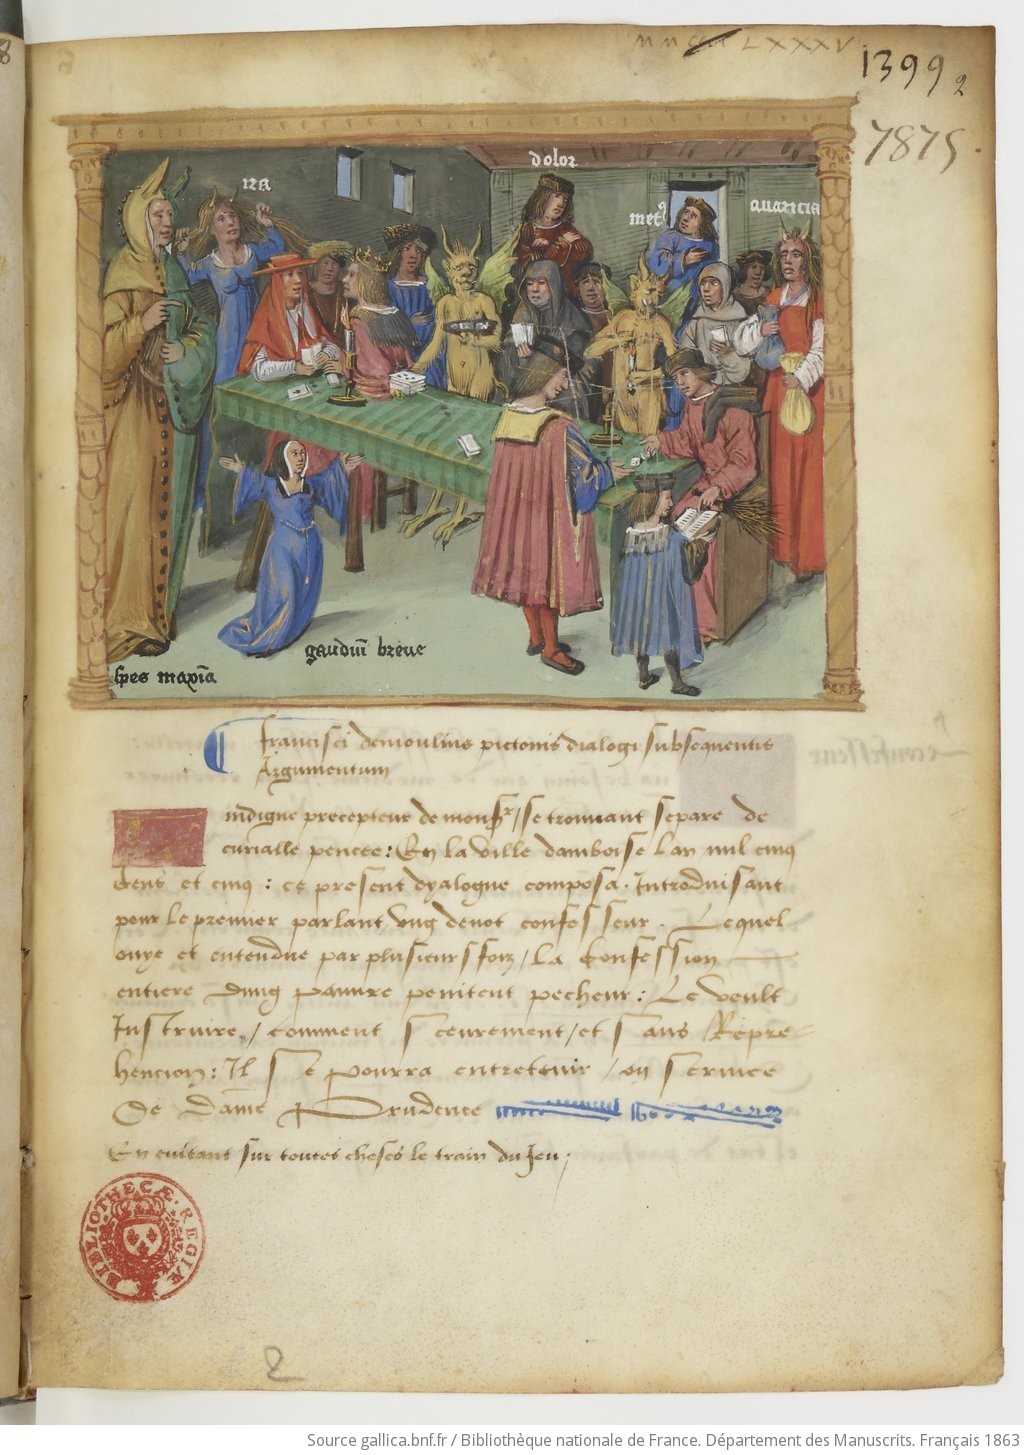 1399
2
7875
dolor
ira
metꝰ
avaricia
gaudiū breve
spes maxīa
Francisci demoulins pictonis dialogi subsequentis
Argumentum
indigne precepteur de monsr / se trouuant separe de
curialle pencee : En la ville damboise Lan mil cinq
Cens et cinq : ce present dyalogue composa . Introduisant
pour le premier parlant vng deuot confesseur . Lequel
ouye et entendue par plusieurs foiz / La Confession
entiere dung pauure penitent pecheur : Le veult
Instruire / comment sceurement / et sans Repre-
hencion : Il se pourra entretenir / en seruice
De Dame Prudence
En euitant sur toutes choses le train du Jeu ;
BIBLIOTHECÆ REGIÆ
2
Source gallica.bnf.fr / Bibliothèque nationale de France. Département des Manuscrits. Français 1863